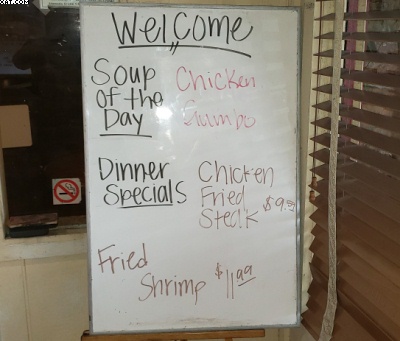 WelCome
Soup of the Day
Chicken Gumbo
Dinner Specials
Chicken Fried Steak $9.99
Fried Shrimp $11.99